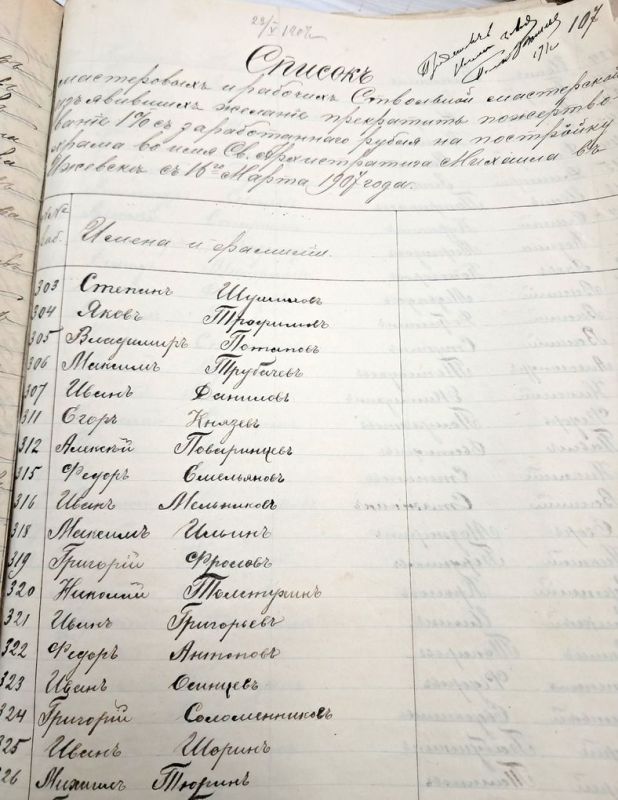 107
Списокъ
мастеровыхъ и рабочихъ Ствольной мастерской
изъявившихъ желаніе прекратить пожертво-
ваніе 1% съ заработаннаго рубля на постройку
храма во имя Св. Архистратига Михаила въ
Ижевскѣ съ 16го Марта 1907 года.
№№ раб. Имена и фамиліи.
303 Степанъ Шушаковъ
304 Яковъ Трофимовъ
305 Владимиръ Потаповъ
306 Максимъ Трубачевъ
307 Иванъ Даниловъ
311 Егоръ Князевъ
312 Алексѣй Поваринцевъ
315 Федоръ Емельяновъ
316 Иванъ Мельниковъ
318 Максимъ Ильинъ
319 Григорій Фроловъ
320 Николай
321 Иванъ Григорьевъ
322 Федоръ Антоновъ
323 Иванъ Осинцевъ
324 Григорій Соломенниковъ
325 Иванъ Шоринъ
326 Михаилъ Тюринъ